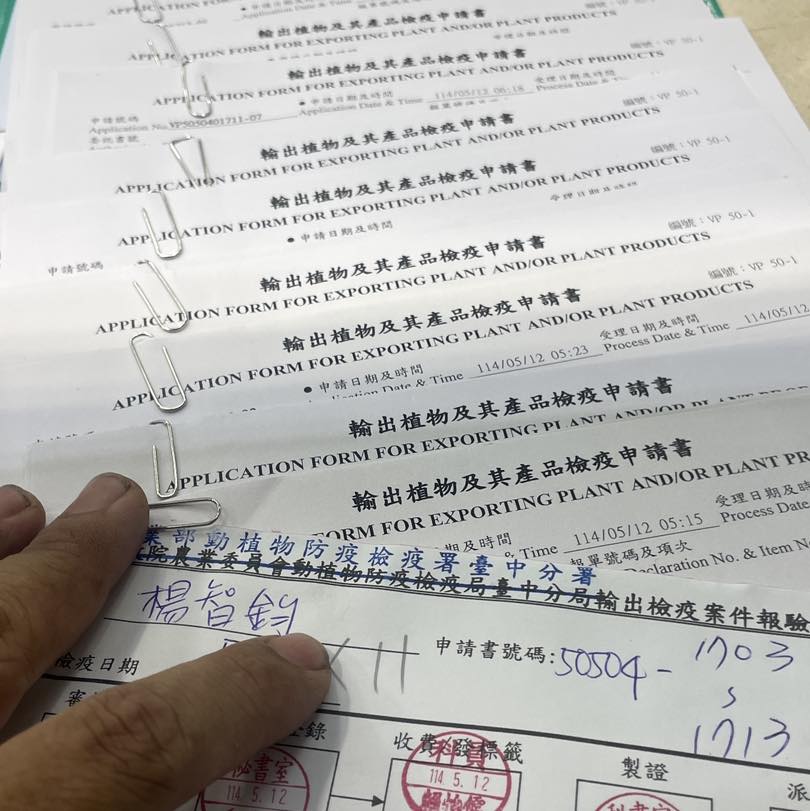 輸出植物及其產品檢疫申請書
APPLICATION FORM FOR EXPORTING PLANT AND/OR PLANT PRODUCTS
編號：VP 50-1
輸出植物及其產品檢疫申請書
APPLICATION FORM FOR EXPORTING PLANT AND/OR PLANT PRODUCTS
申請號碼 ●申請日期及時間 受理日期及時間
Application No. VP5050401711-07 Application Date & Time 114/05/12 06:18 Process Date & Time
編號：VP 50-1
輸出植物及其產品檢疫申請書
APPLICATION FORM FOR EXPORTING PLANT AND/OR PLANT PRODUCTS
編號：VP 50-1
輸出植物及其產品檢疫申請書
APPLICATION FORM FOR EXPORTING PLANT AND/OR PLANT PRODUCTS
申請號碼 ●申請日期及時間
編號：VP 50-1
輸出植物及其產品檢疫申請書
APPLICATION FORM FOR EXPORTING PLANT AND/OR PLANT PRODUCTS
編號：VP 50-1
輸出植物及其產品檢疫申請書
APPLICATION FORM FOR EXPORTING PLANT AND/OR PLANT PRODUCTS
●申請日期及時間 受理日期及時間
Application Date & Time 114/05/12 05:23 Process Date & Time 114/05/12
輸出植物及其產品檢疫申請書
APPLICATION FORM FOR EXPORTING PLANT AND/OR PLANT PRO
輸出植物及其產品檢疫申請書
ORM FOR EXPORTING PLANT AND/OR PLANT PR
期及時間 受理日期及時
& Time 114/05/12 05:15 Process Date
報單號碼及項次
Declaration No. & Item N
業部動植物防疫檢疫署臺中分署
院農業委員會動植物防疫檢疫局臺中分局輸出檢疫案件報驗
楊智鈞
檢疫日期 X11 申請書號碼：50504-1703
1713
登錄 收費/發標籤 製證 派
秘書室 114.5.12
科員 114.5.12